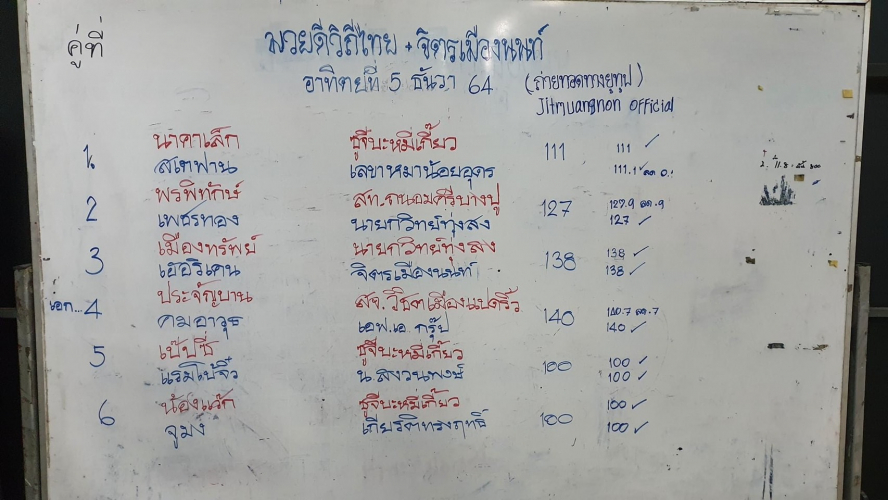 คู่ที่ มวยดีวิถีไทย + จิตรเมืองนนท์
อาทิตย์ที่ 5 ธันวา 64 (ถ่ายทอดทางยูทูป)
Jitmuangnon official
1. นาคาเล็ก ซูจีบะหมี่เกี๊ยว 111 111 ✓
สเตฟาน เลขาหมาน้อยอุดร 111.1
2 พรพิทักษ์ สท.ถนอมศรีบางปู 127 127.9 ลด .9
เพชรทอง นายกวิทย์ทุ่งสง 127 ✓
3 เมืองทรัพย์ นายกวิทย์ทุ่งสง 138 138 ✓
เฮอริเคน จิตรเมืองนนท์ 138 ✓
เอก... 4 ประจัญบาน สจ.วิชิตเมืองแปดริ้ว 140 140.7 ลด .7
คมอาวุธ เอฟ.เอ กรุ๊ป 140 ✓
5 เป๊ปซี่ ซูจีบะหมี่เกี๊ยว 100 100 ✓
แรมโบ้จิ๋ว น.สงวนพงษ์ 100 ✓
6 น้องแว๊ก ซูจีบะหมี่เกี๊ยว 100 100 ✓
จูมง เกียรติทรงฤทธิ์ 100 ✓